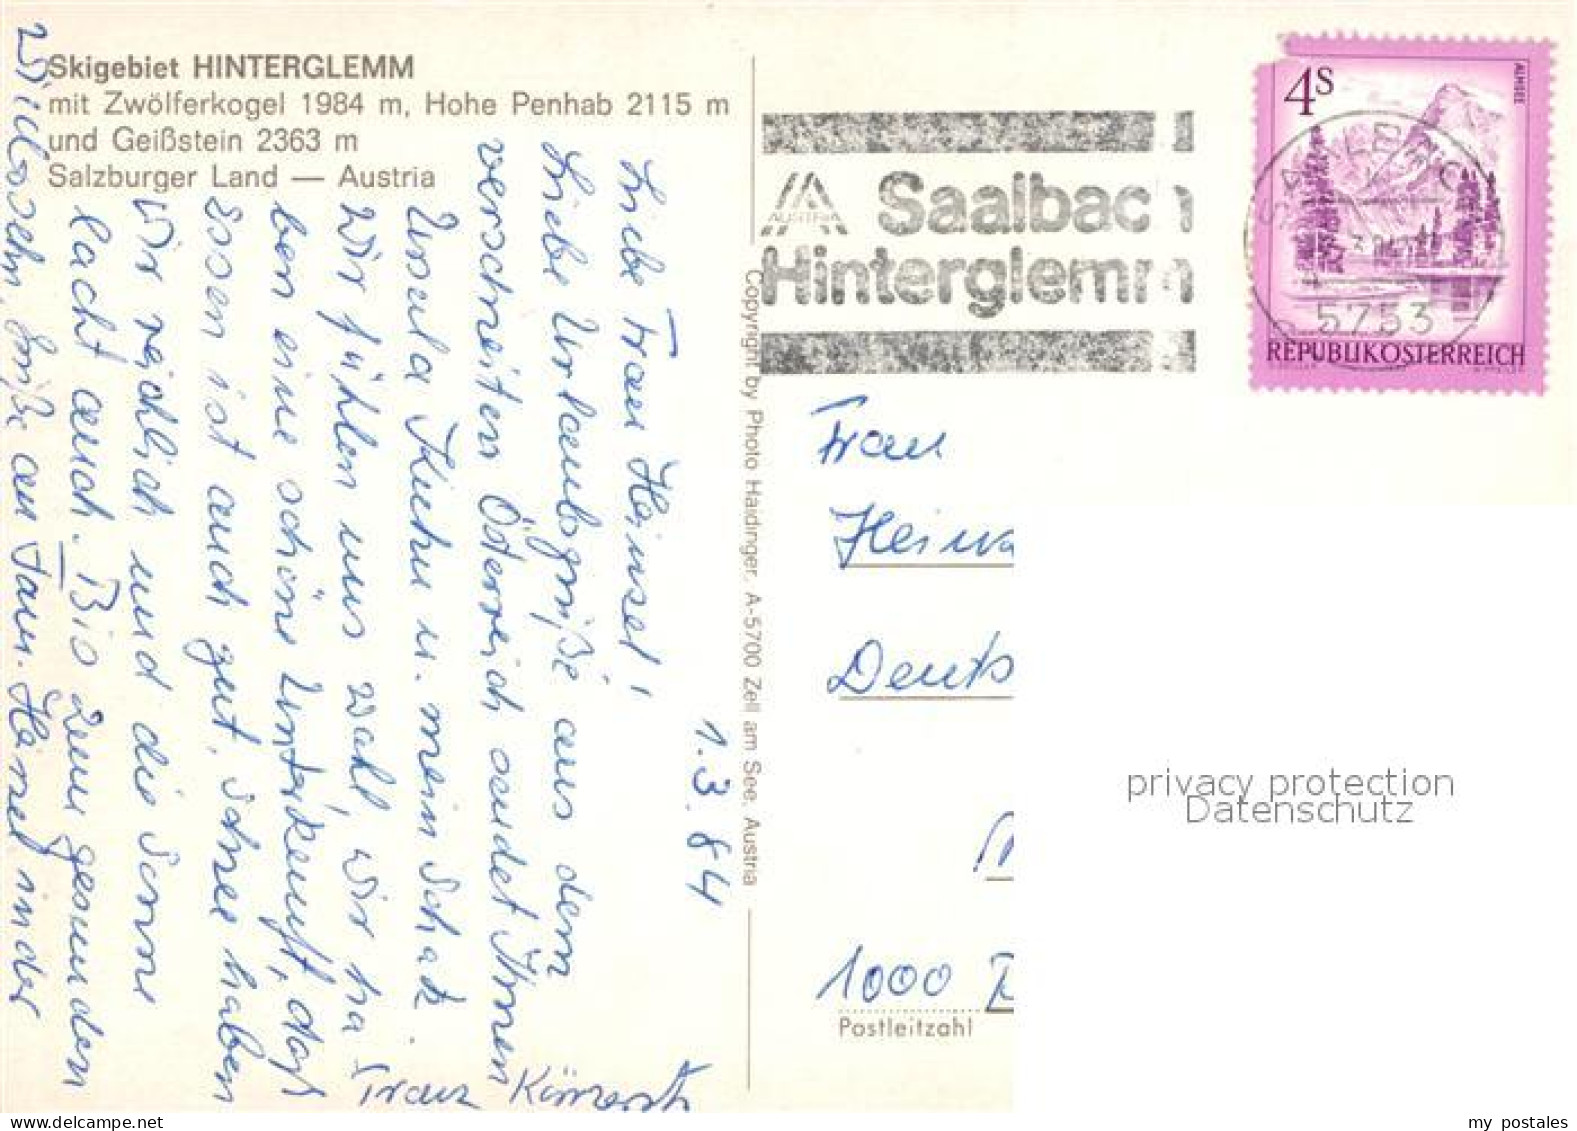 Skigebiet HINTERGLEMM
mit Zwölferkogel 1984 m, Hohe Penhab 2115 m
und Geißstein 2363 m
Salzburger Land — Austria
1.3.84
Liebe Frau Heinsel!
Liebe Urlaubsgrüße aus dem
verschneiten Österreich sendet Ihnen
Ursula Kuehn u. mein Schatz.
Wir fühlen uns wohl, wir ha
ben eine schöne Unterkunft, das
Essen ist auch gut, Schnee haben
wir reichlich und die Sonne
lacht auch. Bis zum gesunden
Wiedersehn, Grüße an Fam. Hänsel in der
Franz
Copyright by Photo Haidinger, A-5700 Zell am See, Austria
AUSTRIA
Saalbach
Hinterglemm
4S
ALMSEE
5753
REPUBLIK ÖSTERREICH
Frau
Deuts
1000
Postleitzahl
privacy protection
Datenschutz
delcampe.net
my postales